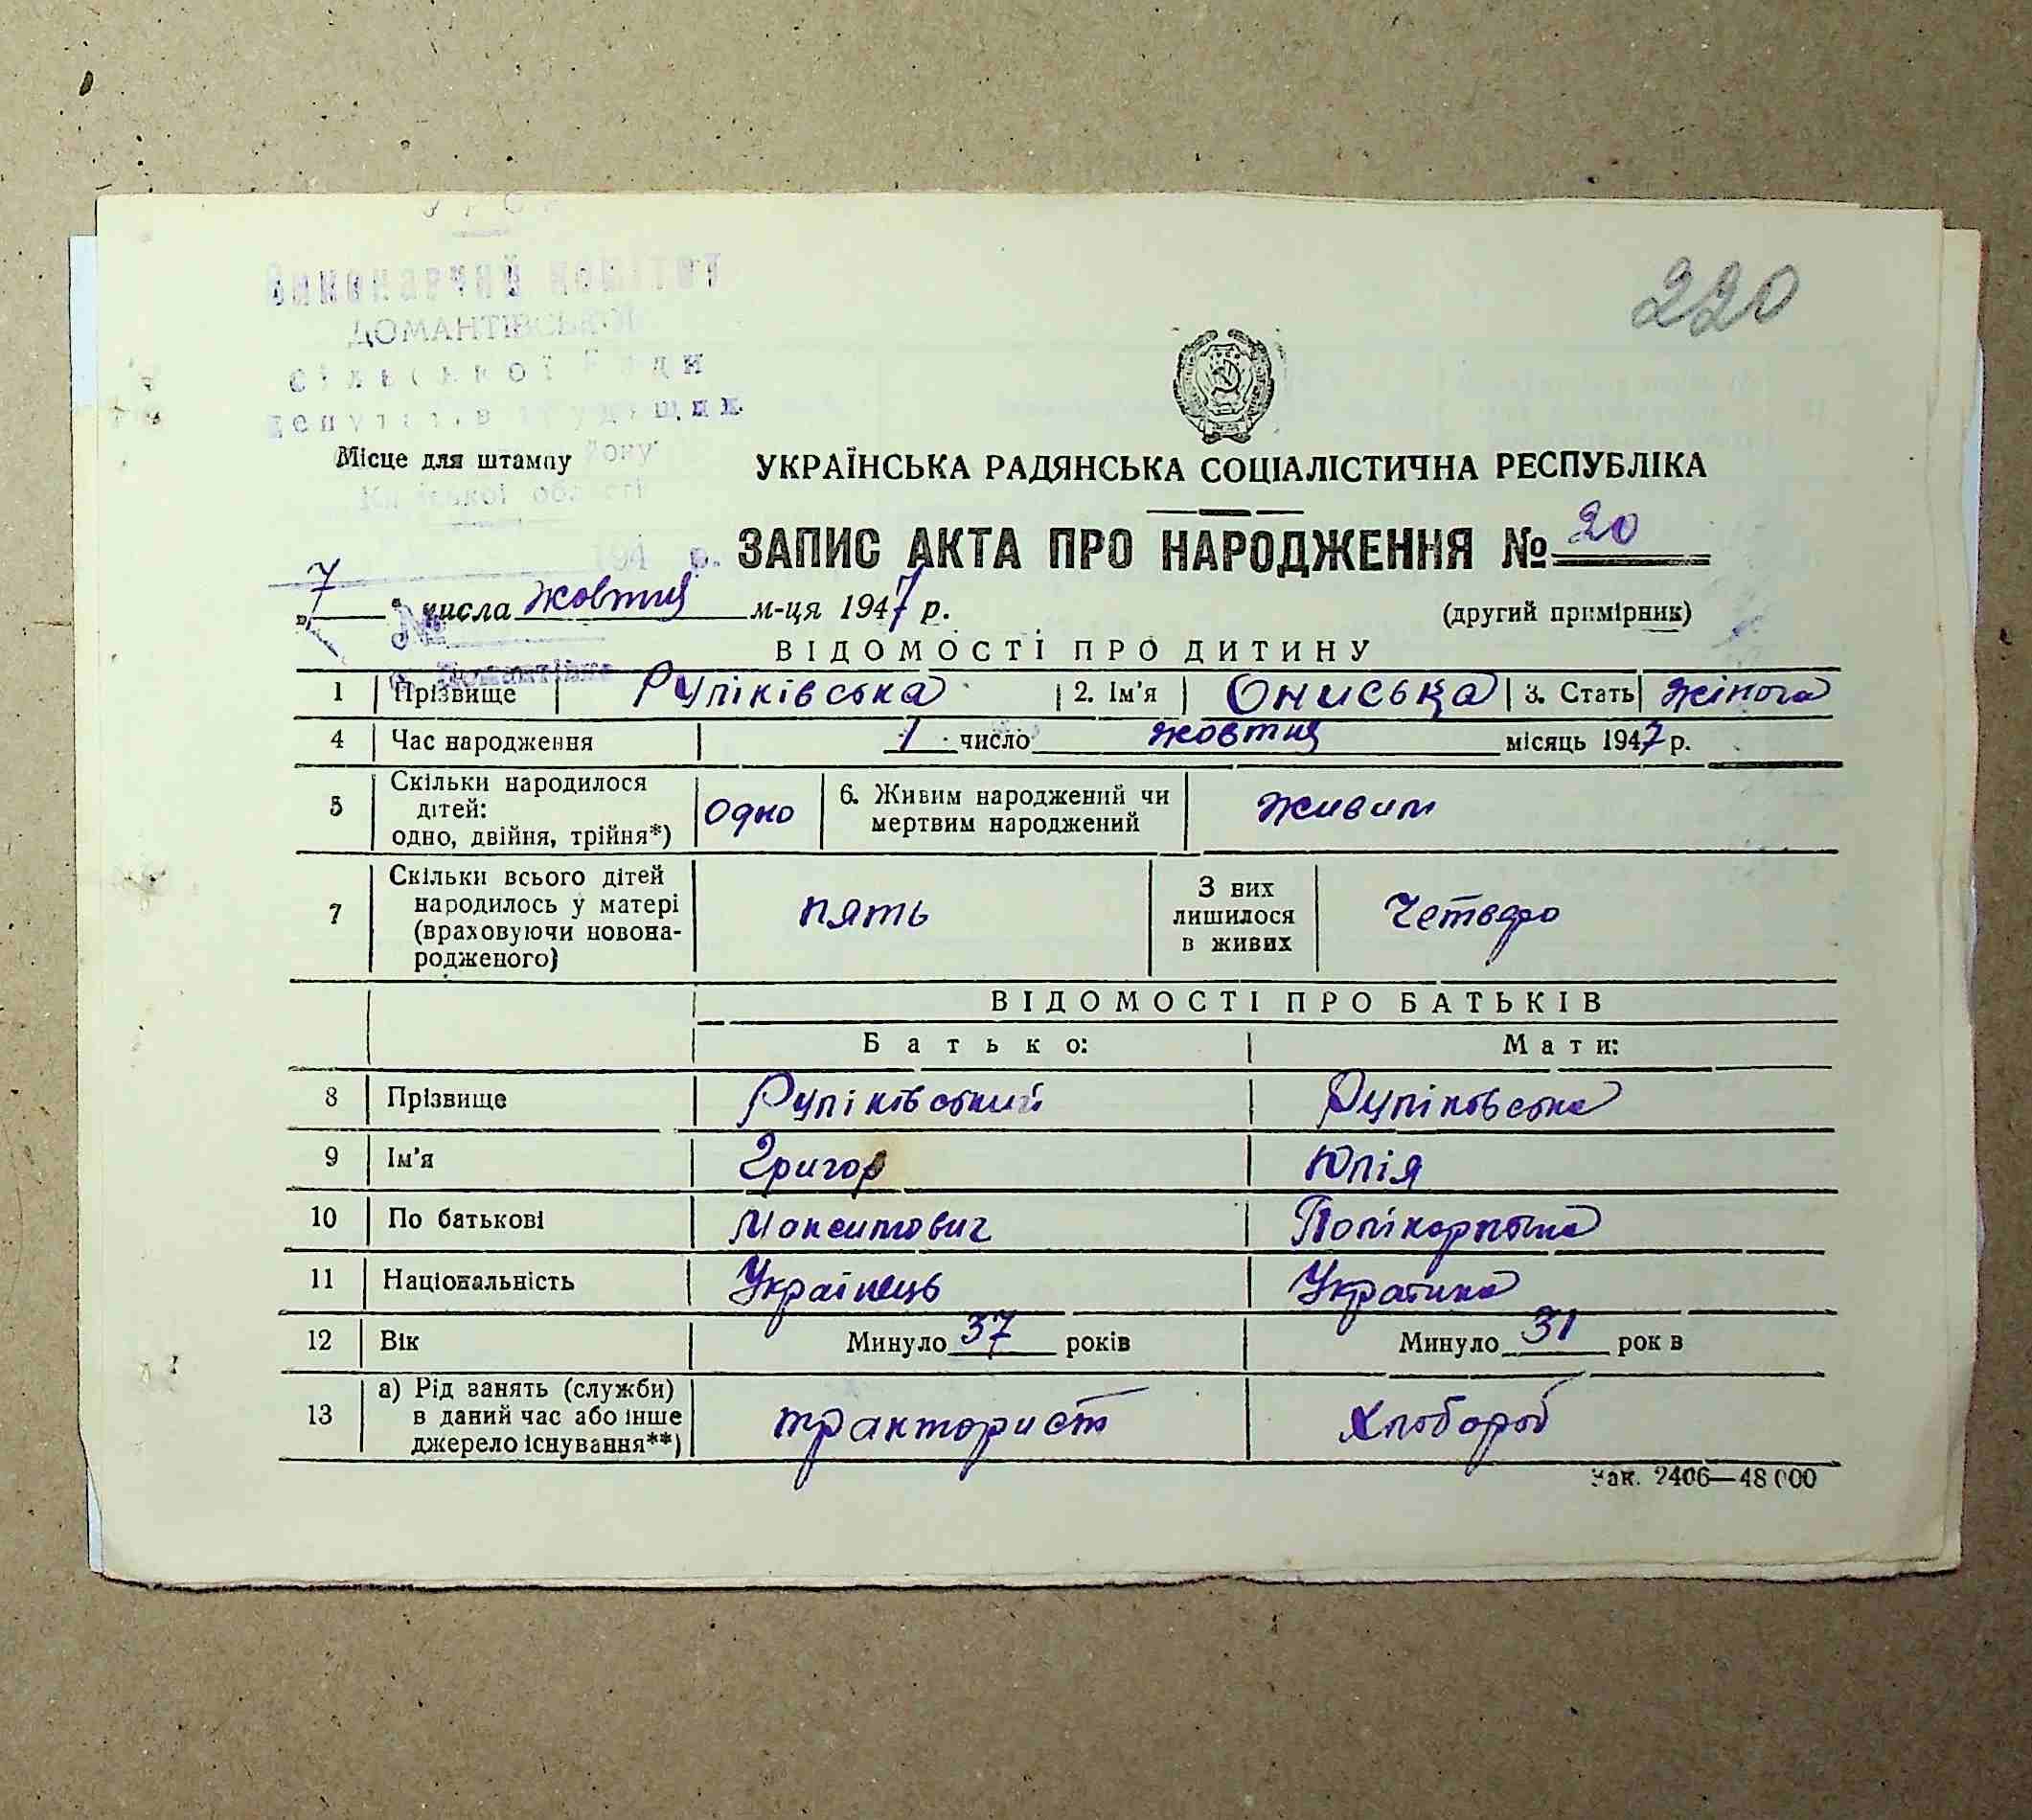 220
ДОМАНТІВСЬКОЇ
сільської Ради
депутатів трудящих
Місце для штампу
Київської області
УКРАЇНСЬКА РАДЯНСЬКА СОЦІАЛІСТИЧНА РЕСПУБЛІКА
194 р.
ЗАПИС АКТА ПРО НАРОДЖЕННЯ № 20
„7“ числа жовтня м-ця 1947 р.
(другий примірник)
№
ВІДОМОСТІ ПРО ДИТИНУ
с. Домантівка
1 Прізвище Рупіківська 2. Ім'я Ониська 3. Стать жіноча
4 Час народження 1 число жовтня місяць 1947 р.
5 Скільки народилося дітей: одно, двійня, трійня*) одно 6. Живим народжений чи мертвим народжений живим
7 Скільки всього дітей народилось у матері (враховуючи новонародженого) пять З них лишилося в живих четверо
ВІДОМОСТІ ПРО БАТЬКІВ
Батько: Мати:
8 Прізвище Рупіківський Рупіківська
9 Ім'я Григор Юлія
10 По батькові Максимович Полікарпівна
11 Національність Українець Українка
12 Вік Минуло 37 років Минуло 31 рок в
13 а) Рід занять (служби) в даний час або інше джерело існування**) тракторист Хлібороб
Зак. 2406—48 000